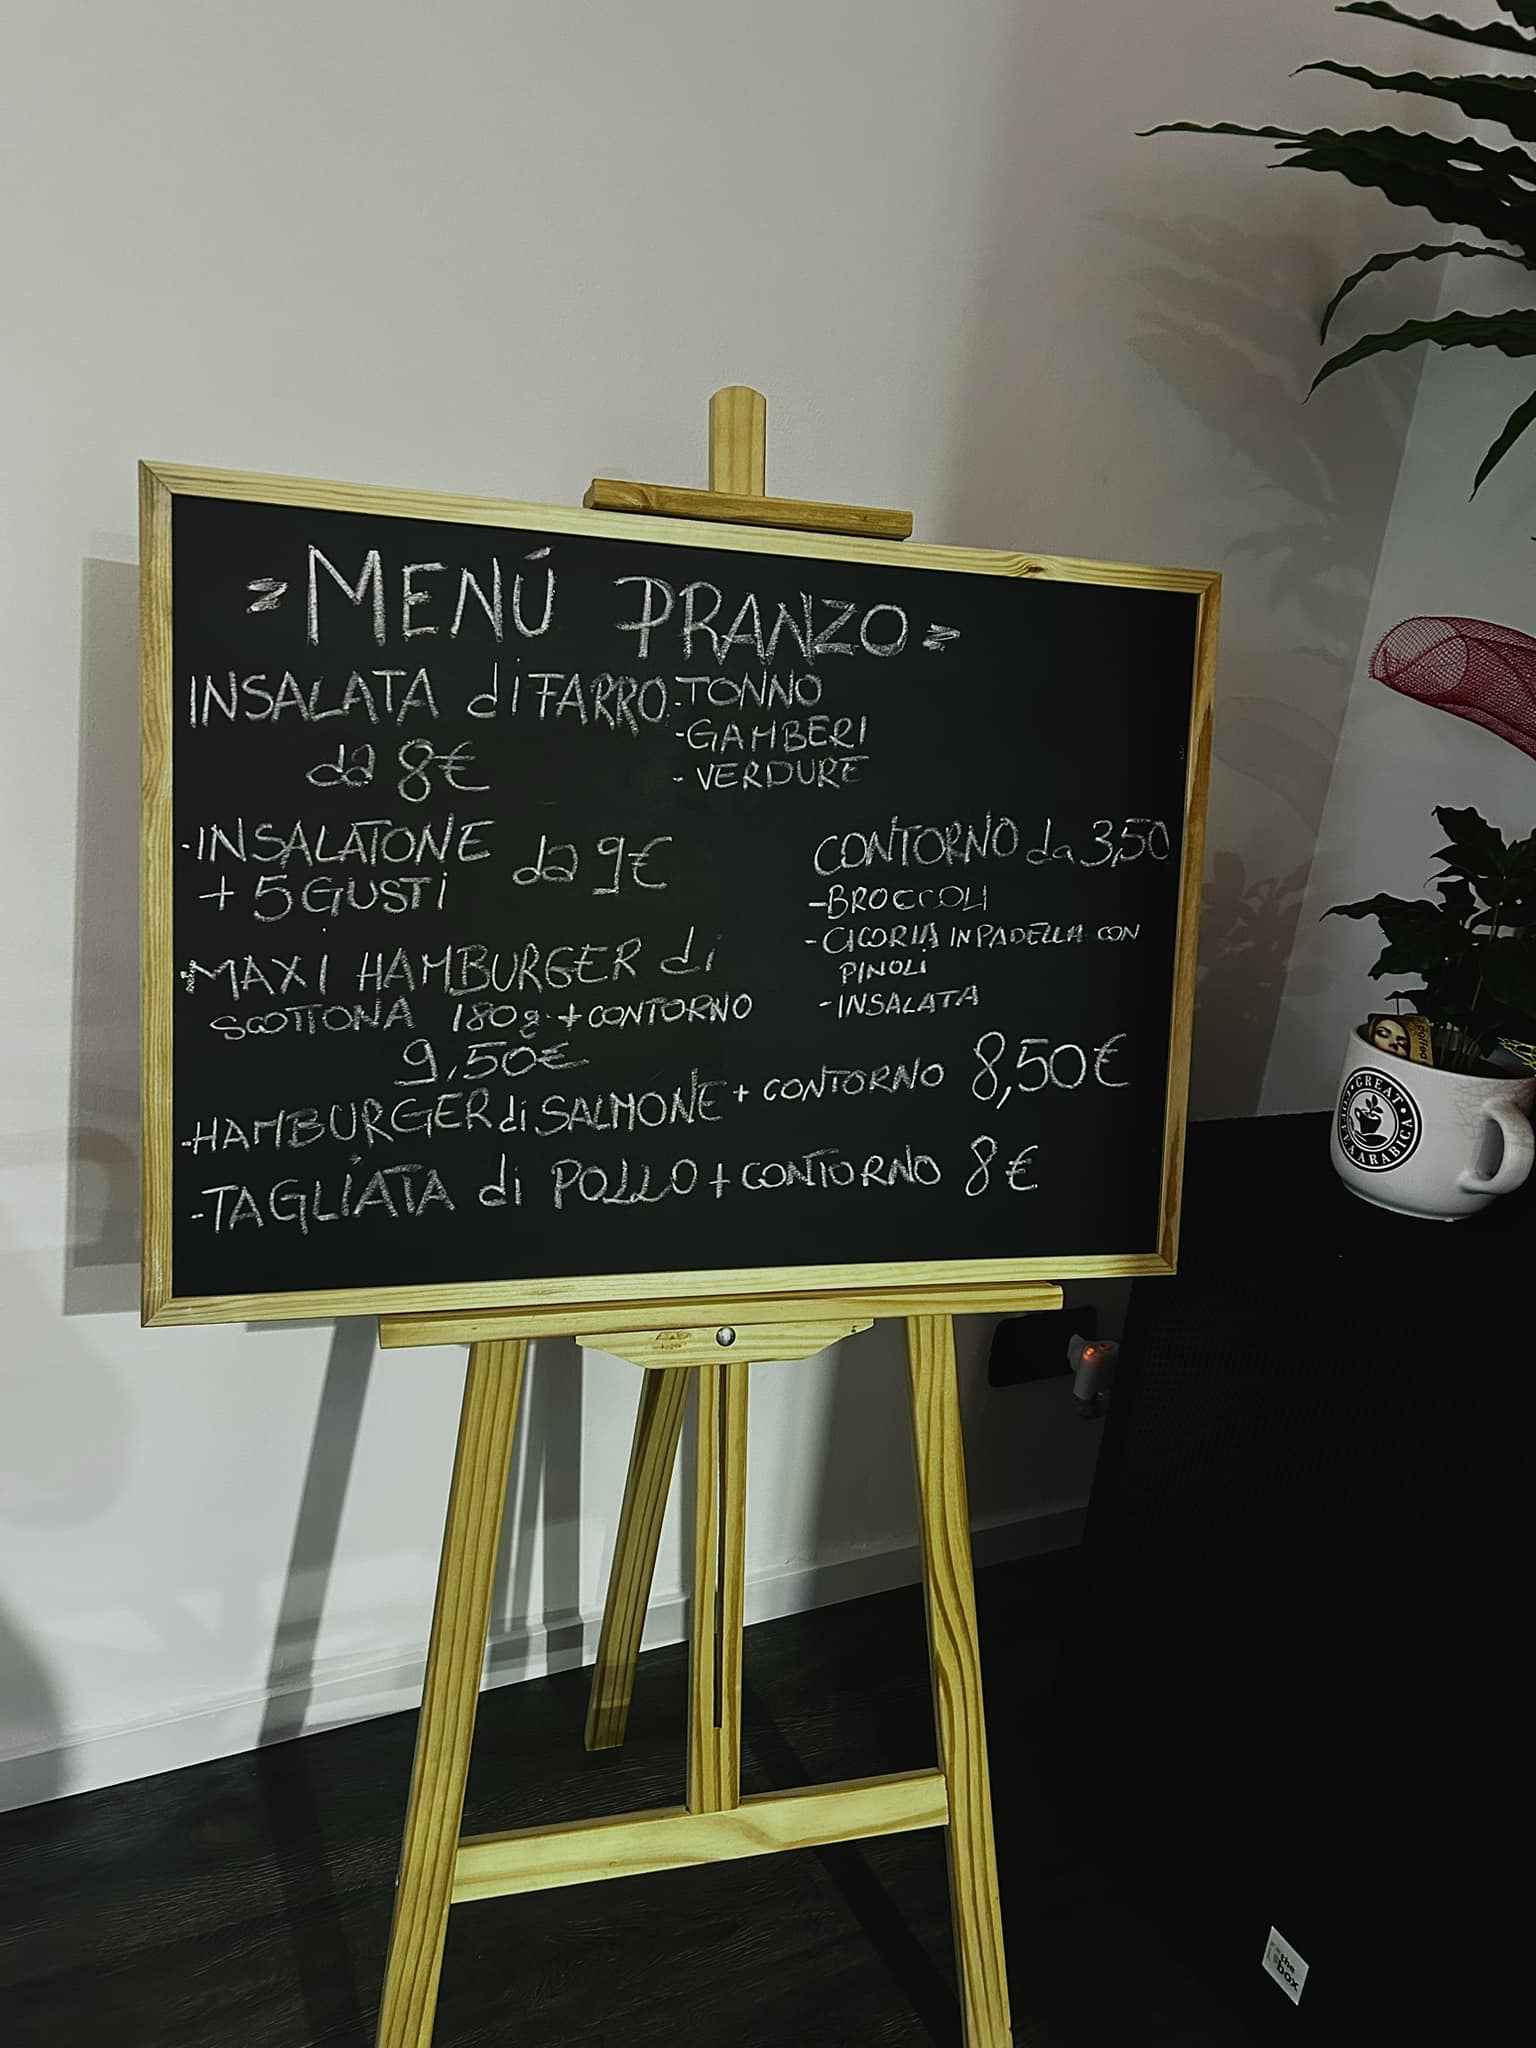 MENÚ PRANZO
INSALATA di FARRO
da 8€
- TONNO
- GAMBERI
- VERDURE
- INSALATONE
+ 5 GUSTI
da 9€
MAXI HAMBURGER di
SCOTTONA 180g + CONTORNO
9,50€
CONTORNO da 3,50
- BROCCOLI
- CICORIA IN PADELLA CON
PINOLI
- INSALATA
- HAMBURGER di SALMONE + CONTORNO 8,50€
- TAGLIATA di POLLO + CONTORNO 8€
GREAT
ARABICA
the
box